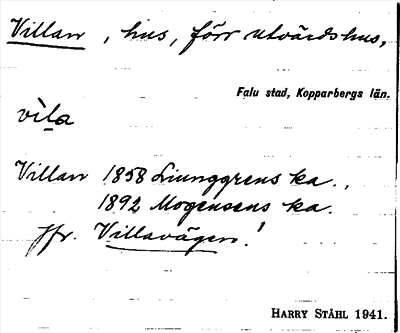 Villan, hus, förr utvärdshus,
Falu stad, Kopparbergs län.
vìla
Villan 1858 Ljunggrens ka.,
1892 Mogensens ka.
jfr. Villavägen!
HARRY STÅHL 1941.